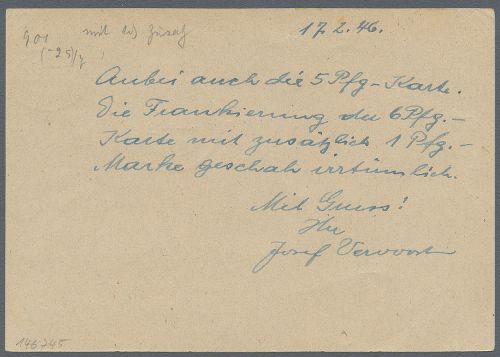 901 mit
17.2.46.
Anbei auch die 5 Pfg-Karte.
Die Frankierung der 6 Pfg.-
Karte mit zusätzlich 1 Pfg.-
Marke geschah irrtümlich.
Mit Gruss!
Ihr
Josef Vervoort
146745